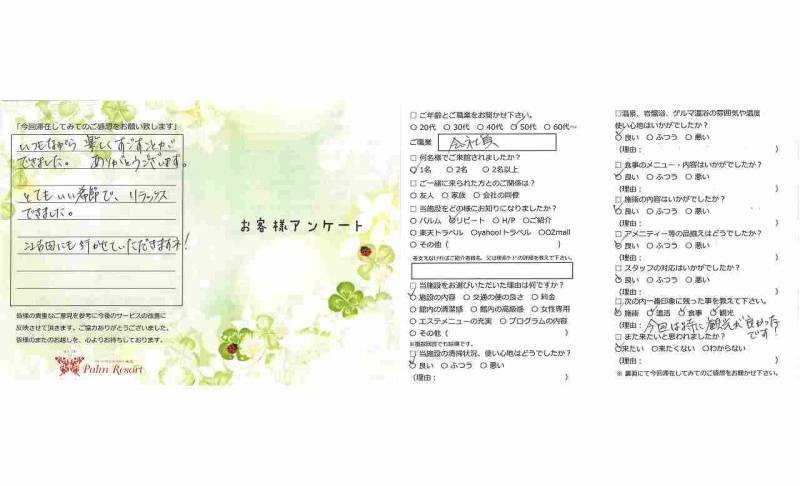 「今回滞在してみてのご感想をお願い致します」
いつもながら 楽しくすごすことが
できました。 ありがとうございます。
とてもいい季節で、リラックス
できました。
皆様の貴重なご意見を参考に今後のサービスの改善に
反映させて頂きます。ご協力ありがとうございました。
皆様のまたのお越しを、心よりお待ちしております。
Palm Resort
お客様アンケート
□ ご年齢とご職業をお聞かせ下さい。
○ 20代 ○ 30代 ○ 40代 ○ 50代 ○ 60代～
ご職業 会社員
□ 何名様でご来館されましたか?
○ 1名 ○ 2名 ○ 2名以上
□ ご一緒に来られた方とのご関係は?
○ 友人 ○ 家族 ○ 会社の同僚
□ 当施設をどの様にお知りになりましたか?
○ パルム ○ リピート ○ H/P ○ ご紹介
○ 楽天トラベル ○yahoo!トラベル ○OZmall
○ その他 ( )
差支えなければご紹介者様名、又は検索ワードの詳細を教えて下さい。
□ 当施設をお選びいただいた理由は何ですか?
○ 施設の内容 ○ 交通の便の良さ ○ 料金
○ 館内の清潔感 ○ 館内の高級感 ○ 女性専用
○ エステメニューの充実 ○ プログラムの内容
○ その他 ( )
※複数回答でも結構です。
□ 当施設の清掃状況、使い心地はどうでしたか?
○ 良い ○ ふつう ○ 悪い
(理由: )
□温泉、岩盤浴、ゲルマ温浴の雰囲気や温度
使い心地はいかがでしたか?
○ 良い ○ ふつう ○ 悪い
(理由: )
□ 食事のメニュー・内容はいかがでしたか?
○ 良い ○ ふつう ○ 悪い
(理由: )
□ 施術の内容はいかがでしたか?
○ 良い ○ ふつう ○ 悪い
□ アメニティー等の品揃えはどうでしたか?
○ 良い ○ ふつう ○ 悪い
(理由: )
□ スタッフの対応はいかがでしたか?
○ 良い ○ ふつう ○ 悪い
(理由: )
□ 次の内一番印象に残った事を教えて下さい。
○ 施術 ○ 温活 ○ 食事 ○ 観光
(理由: 今回は特に観光が良かった
です!
□ また来たいと思われましたか?
○ 来たい ○ 来たくない ○ わからない
(理由: )
※ 裏面にて今回滞在してみてのご感想をお聞かせ下さい。